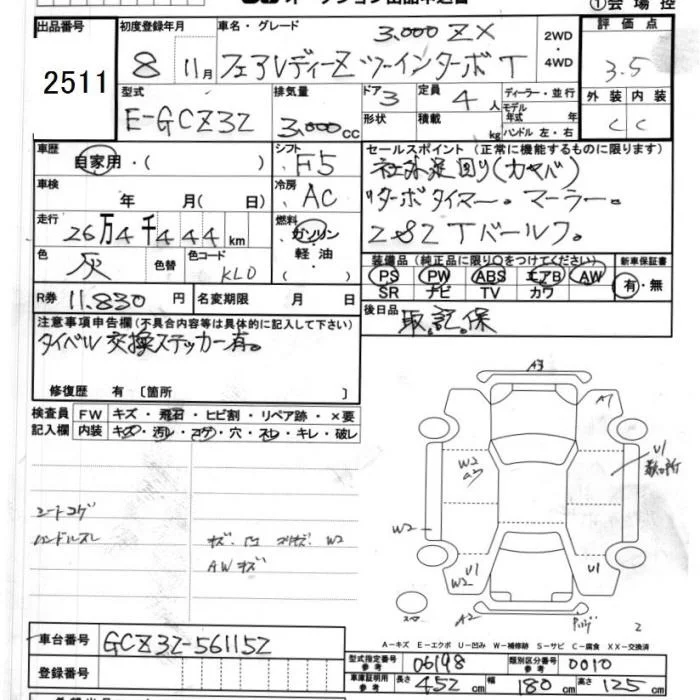 ①会場控
出品番号 2511
初度登録年月 8 11月
車名・グレード 3,000 ZX
フェアレディーZ ツーインターボ T
2WD・4WD
評価点 3.5
外装 内装
C C
型式 E-GCZ32
排気量 3,000cc
ドア 3 形状
定員 4人 積載 kg
ディーラー・並行
モデル年式 年式
ハンドル 左・右
車歴 自家用・( )
シフト F5
車検 年 月( 日)
冷房 AC
走行 26万4千444km
燃料 ガソリン・軽油・( )
色 灰 色替 色コード KL0
R券 11,830円 名変期限 月 日
セールスポイント(正常に機能するものに限ります)
社外足回り(カヤバ)
ターボタイマー。マーフラー。
Z32Tバールフ。
装備品(純正品に限り○をつけてください)
PS PW ABS エアB AW
SR ナビ TV カワ
新車保証書 有・無
後日品 取.記.保
注意事項申告欄(不具合内容等は具体的に記入して下さい)
タイベル交換ステッカー有。
修復歴 有〔箇所 〕
検査員記入欄
FW キズ・飛石・ヒビ割・リペア跡・×要
内装 キズ・汚レ・コゲ・穴・スレ・キレ・破レ
シートコゲ
ハンドルスレ
AWキズ
A3
A1
W2
U1
数ヶ所
W2
U1
W2
U1
A2
A-キズ E-エクボ U-凹み W-補修跡 S-サビ C-腐食 XX-交換済
車台番号 GCZ32-561152
登録番号
型式指定番号 参考 06198 類別区分番号 参考 0010
車庫証明用 参考 長さ 452cm 幅 180cm 高さ 125cm